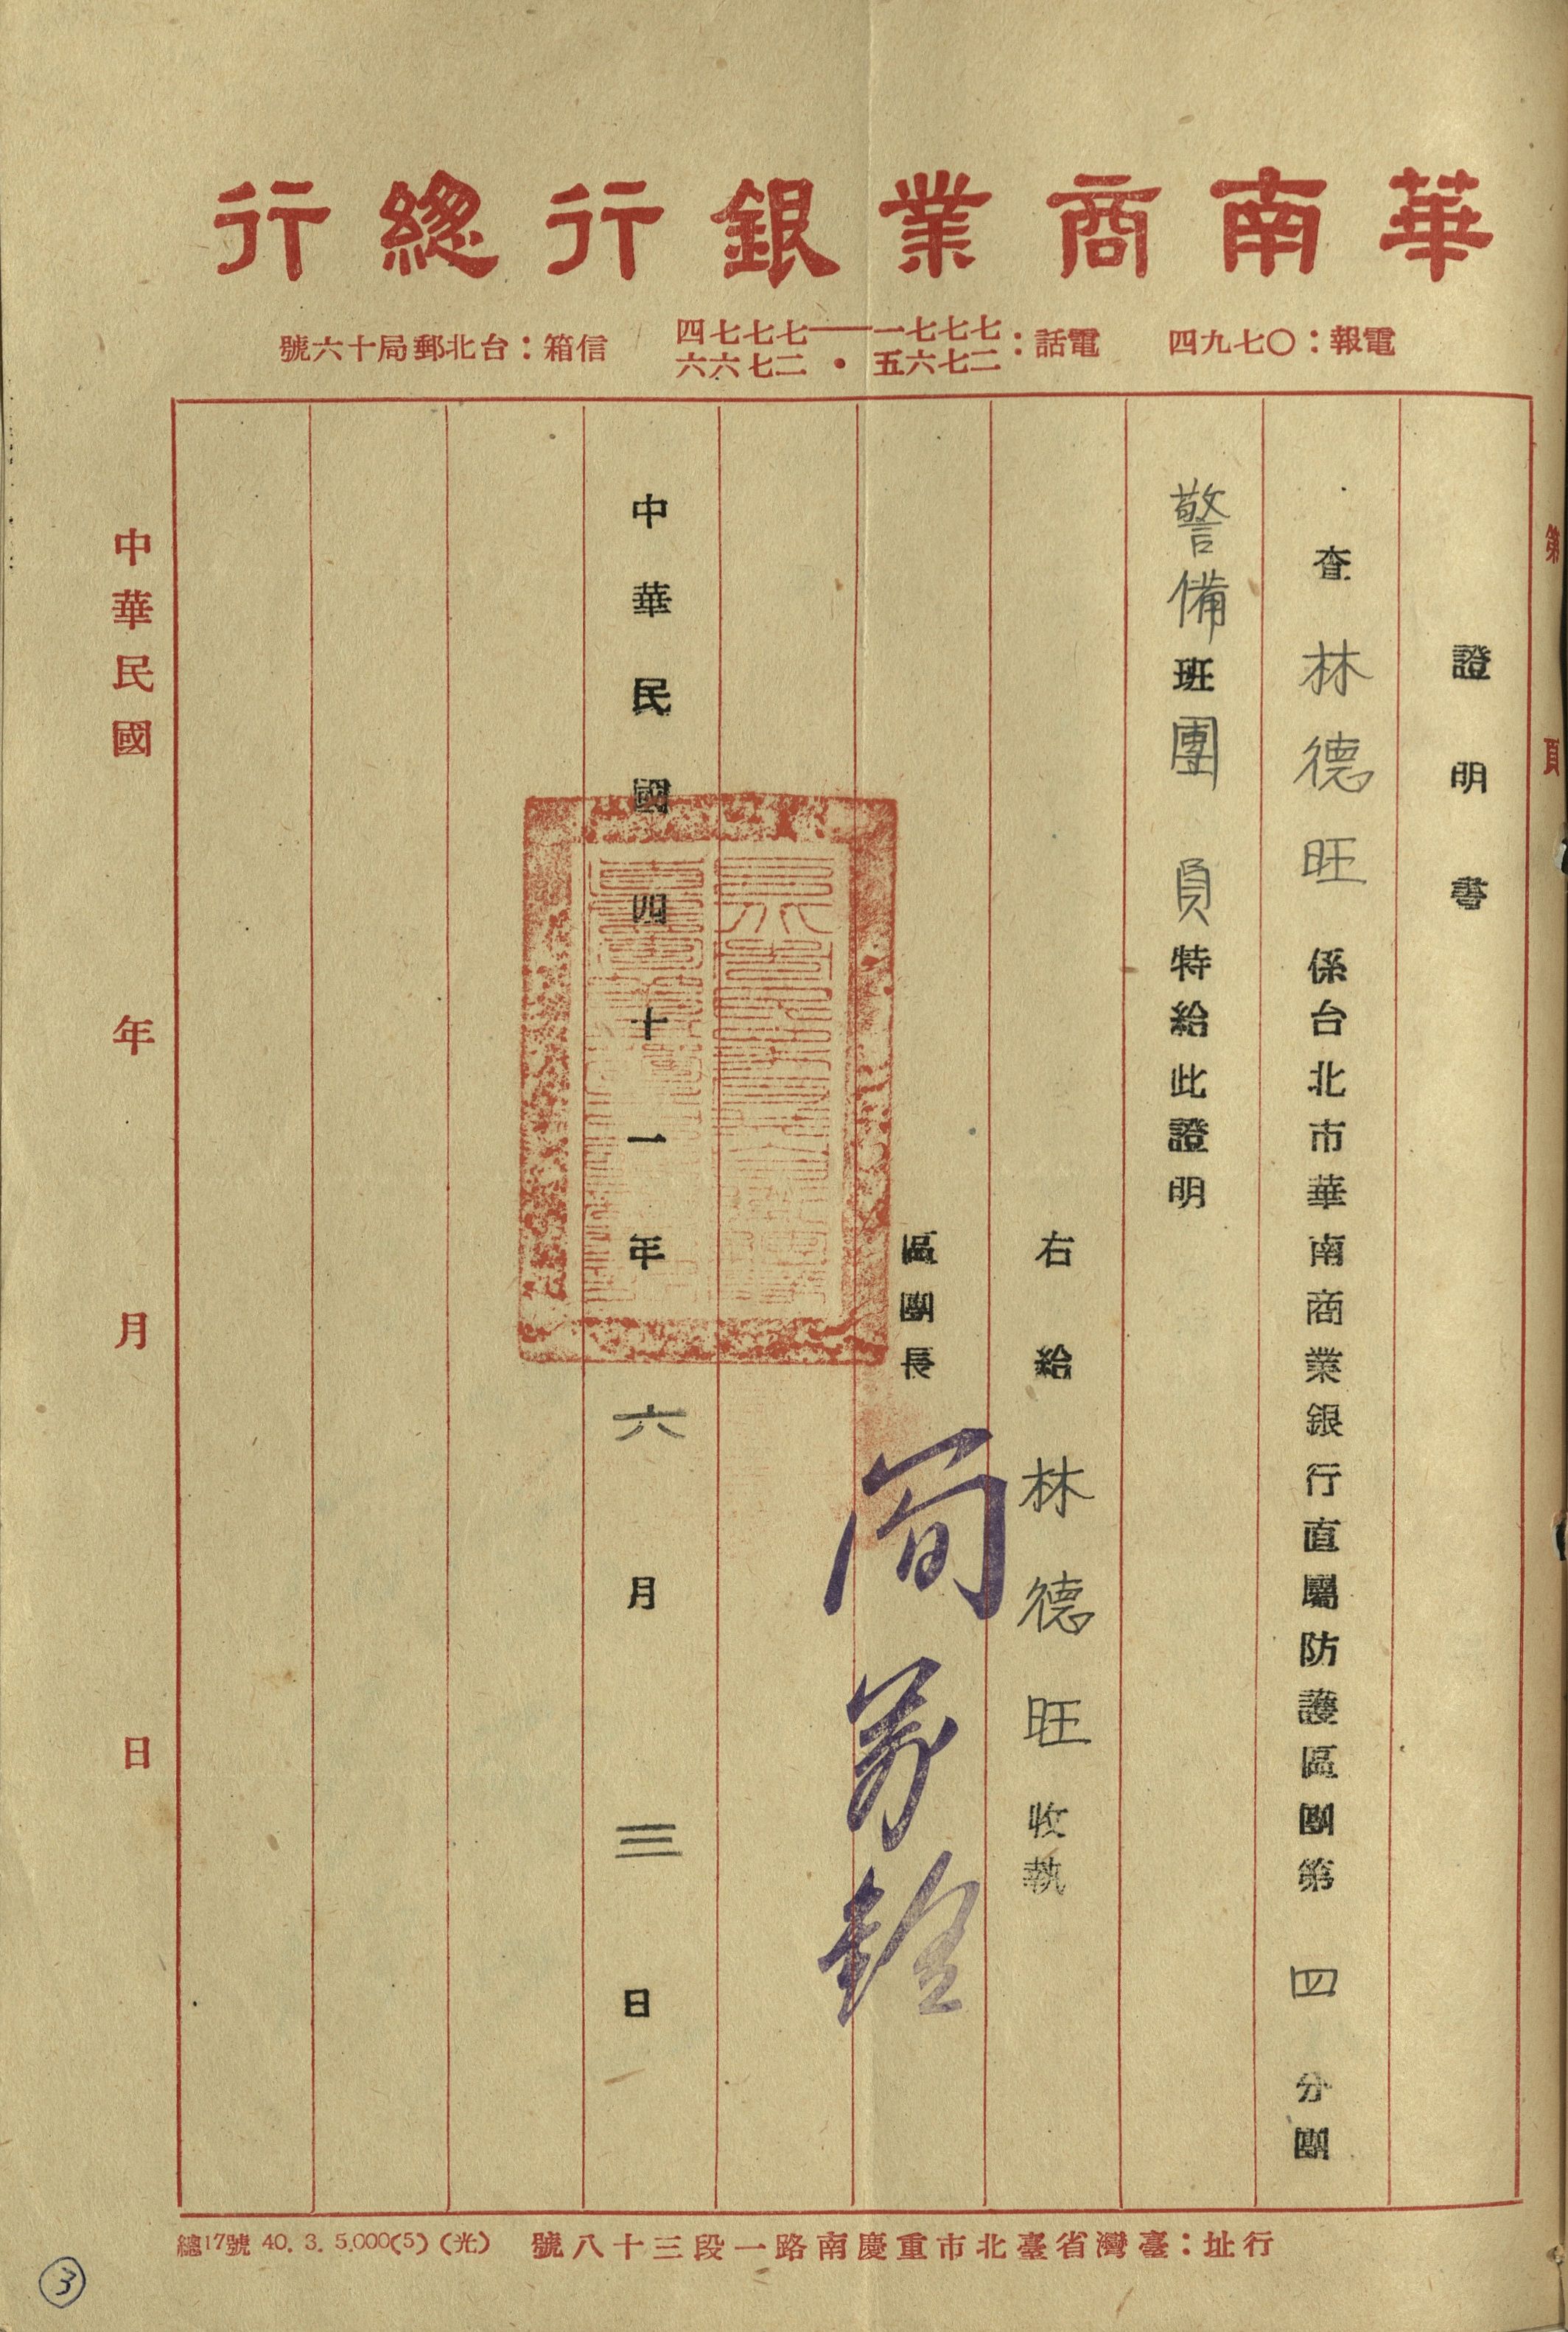 華南商業銀行總行
電報：四九七〇
電話：七七七一——七七七四
二七六五・二七六六
信箱：台北郵局十六號
第 頁
證明書
查林德旺係台北市華南商業銀行直屬防護區團第四分團
警備班團員特給此證明
右給林德旺收執
區團長
中華民國四十一年六月三日
中華民國 年 月 日
行址：臺灣省臺北市重慶南路一段三十八號
總17號 40. 3. 5.000(5) (光)
3